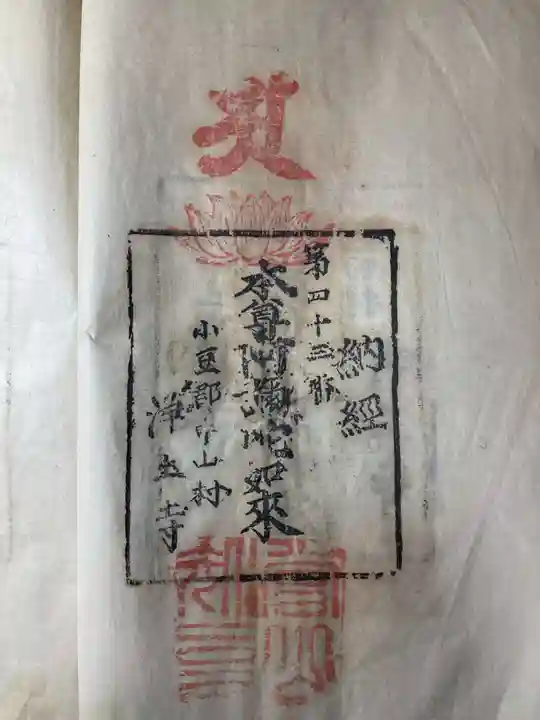 納經
第四十三
本尊阿彌陀如來
小豆郡中山村
淨土寺